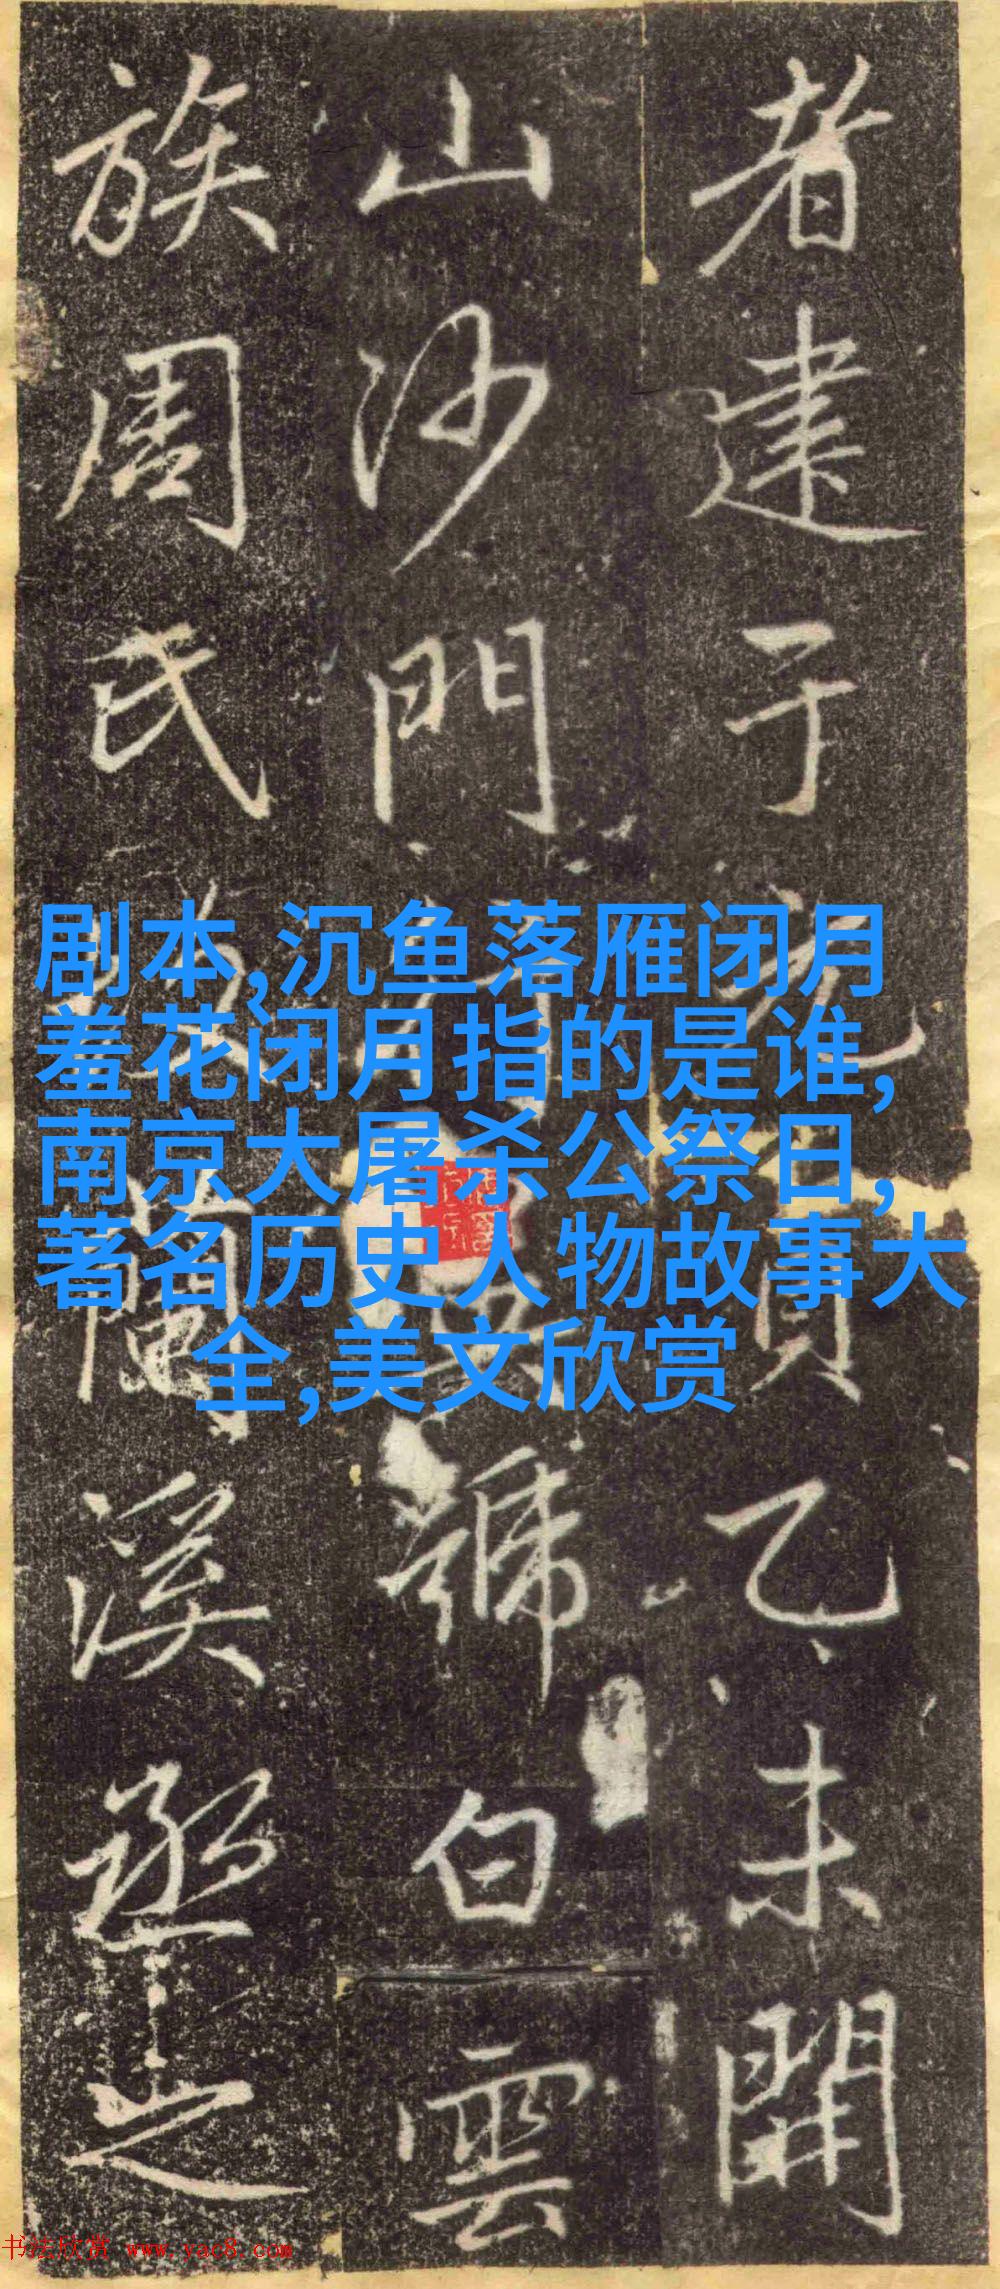 者建于元貞乙未開
山沙門號白雲
族周氏蘭溪丞之
剧本,沉鱼落雁闭月
羞花闭月指的是谁,
南京大屠杀公祭日,
著名历史人物故事大
全,美文欣赏
书法欣赏 www.yac8.com